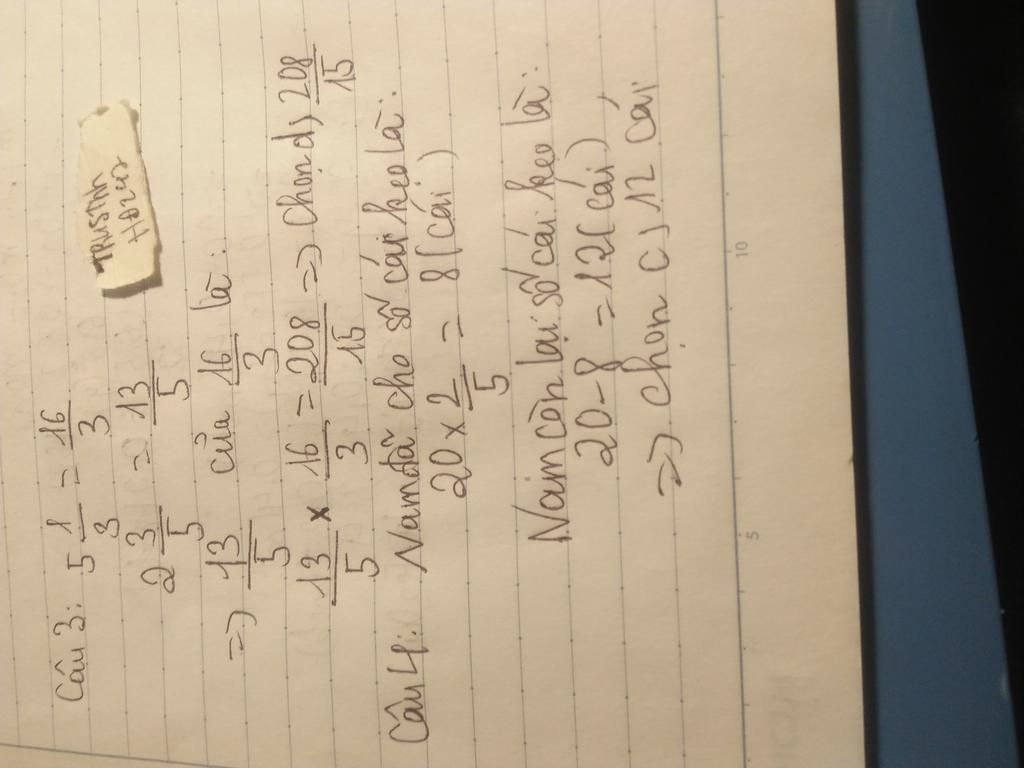 Câu 3: 5 1/3 = 16/3
2 3/5 = 13/5
=> 13/5 của 16/3 là:
13/5 × 16/3 = 208/15 => chọn d, 208/15
Câu 4: Nam đã cho số cái kẹo là:
20 × 2/5 = 8 (cái)
Nam còn lại số cái kẹo là:
20 - 8 = 12 (cái)
=> chọn c, 12 cái
5
10